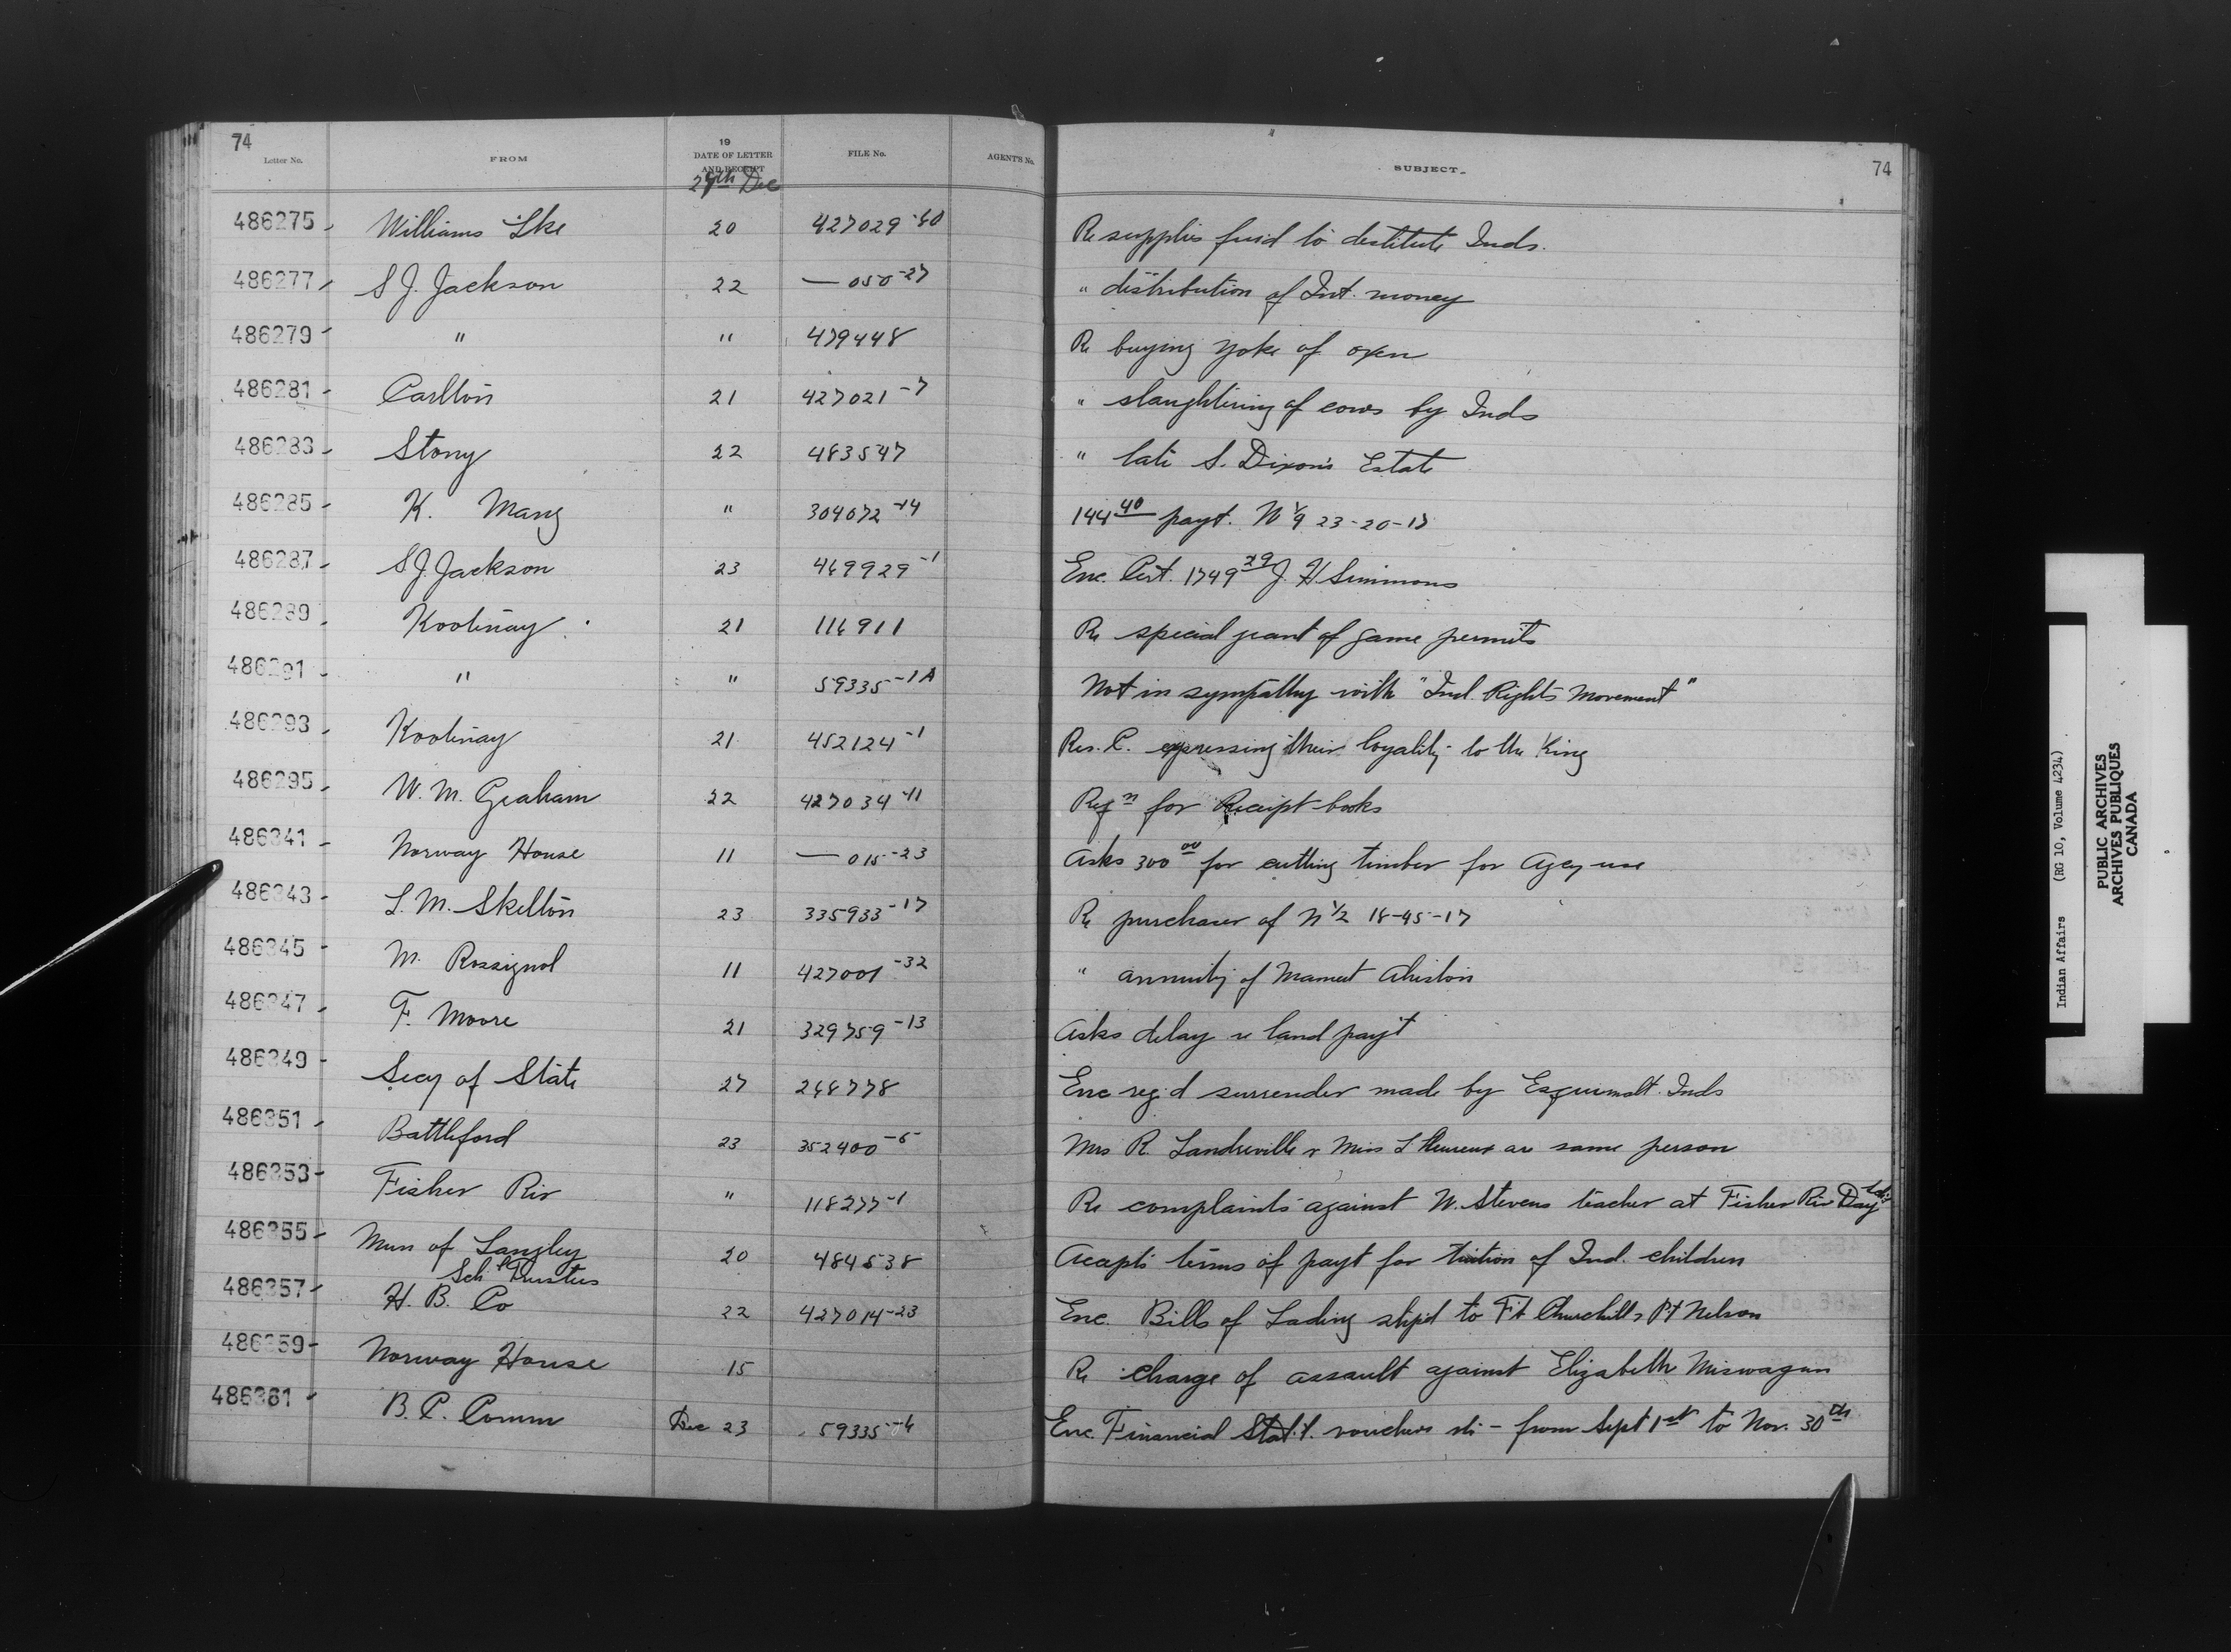 74
Letter No. FROM 19 DATE OF LETTER AND RECEIPT FILE No. AGENT'S No. SUBJECT. 74
29th Dec
486275 Williams Lke 20 427029-60 Re supplies fuid to destitute Inds.
486277 S J. Jackson 22 — 050-27 " distribution of Int. money
486279 " " 479448 Re buying yoke of oxen
486281 Carlton 21 427021-7 " slaughtering of cows by Inds
486283 Stony 22 483547 " late S. Dixon's Estate
486285 K. Mang " 304072-14 144 40 payt. N 23-20-17
486287 S J. Jackson 23 469929-1 Enc. Cert. 1749 29 J. H. Simmons
486289 Kootenay 21 116911 Re special grant of game permits
486291 " " 59335-1A Not in sympathy with "Ind. Rights Movement"
486293 Kootenay 21 452124-1 Res. C. expressing their loyality to the King
486295 W. M. Graham 22 427034-11 Reqn for Receipt books
486341 Norway House 11 — 015-23 Asks 300 00 for cutting timber for Agcy use
486343 L. M. Skelton 23 335933-17 Re purchaser of N 1/2 18-45-17
486345 M. Rossignol 11 427001-32 " annuity of
486347 F. Moore 21 329759-13 Asks delay re land payt
486349 Secy of State 27 248778 Enc reg'd surrender made by Esquimalt Inds
486351 Battleford 23 352400-5 Mrs R. Landreville & Miss L'Heureux are same person
486353 Fisher Riv " 118277-1 Re complaints against W. Stevens teacher at Fisher Riv Day
486355 Mun of Langley 20 484538 Accepts terms of payt for tuition of Ind. children
Schl Trustees
486357 H. B. Co 22 427014-23 Enc. Bills of Lading shpd to Ft Churchill & Pt Nelson
486359 Norway House 15 Re charge of assault against Elizabeth Miswagan
486361 B. C. Comm Dec 23 59335-4 Enc. Financial Stat. vouchers etc - from Sept 1st to Nov. 30th
Indian Affairs (RG 10, Volume 4234)
PUBLIC ARCHIVES
ARCHIVES PUBLIQUES
CANADA